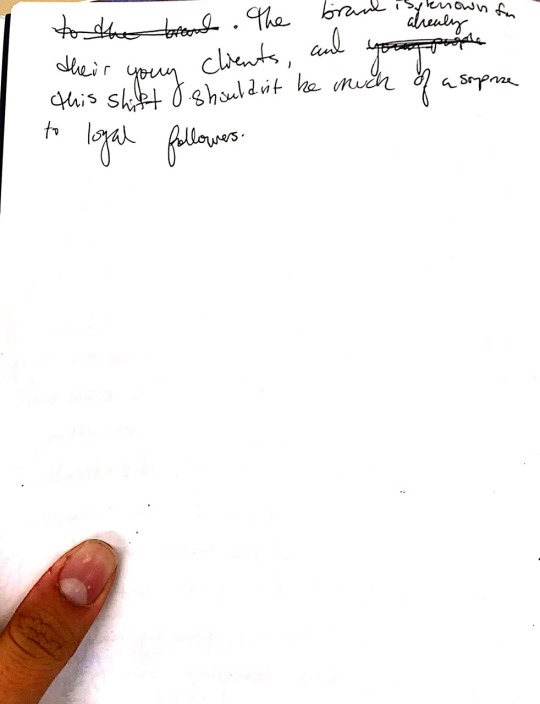 to the brand. The brand is already known for
their young clients, and young people
this shift shouldn't be much of a surprise
to loyal followers.